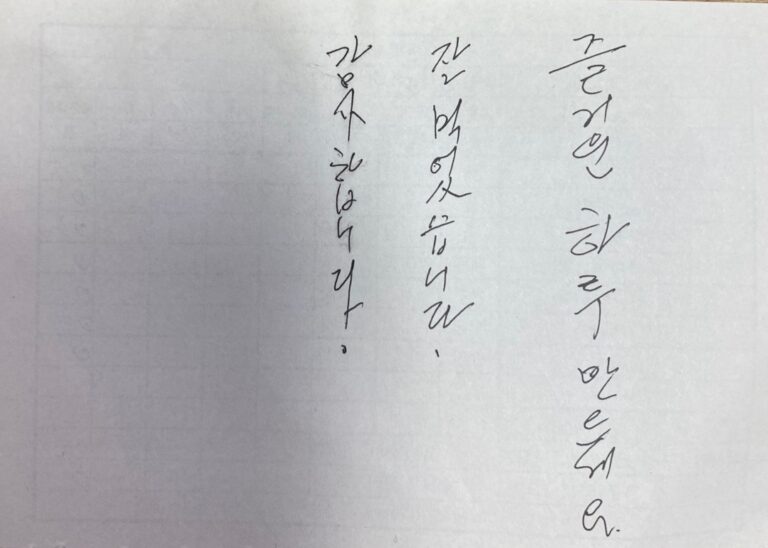 즐거운 하루 만드세요.
잘 먹었습니다.
감사합니다.